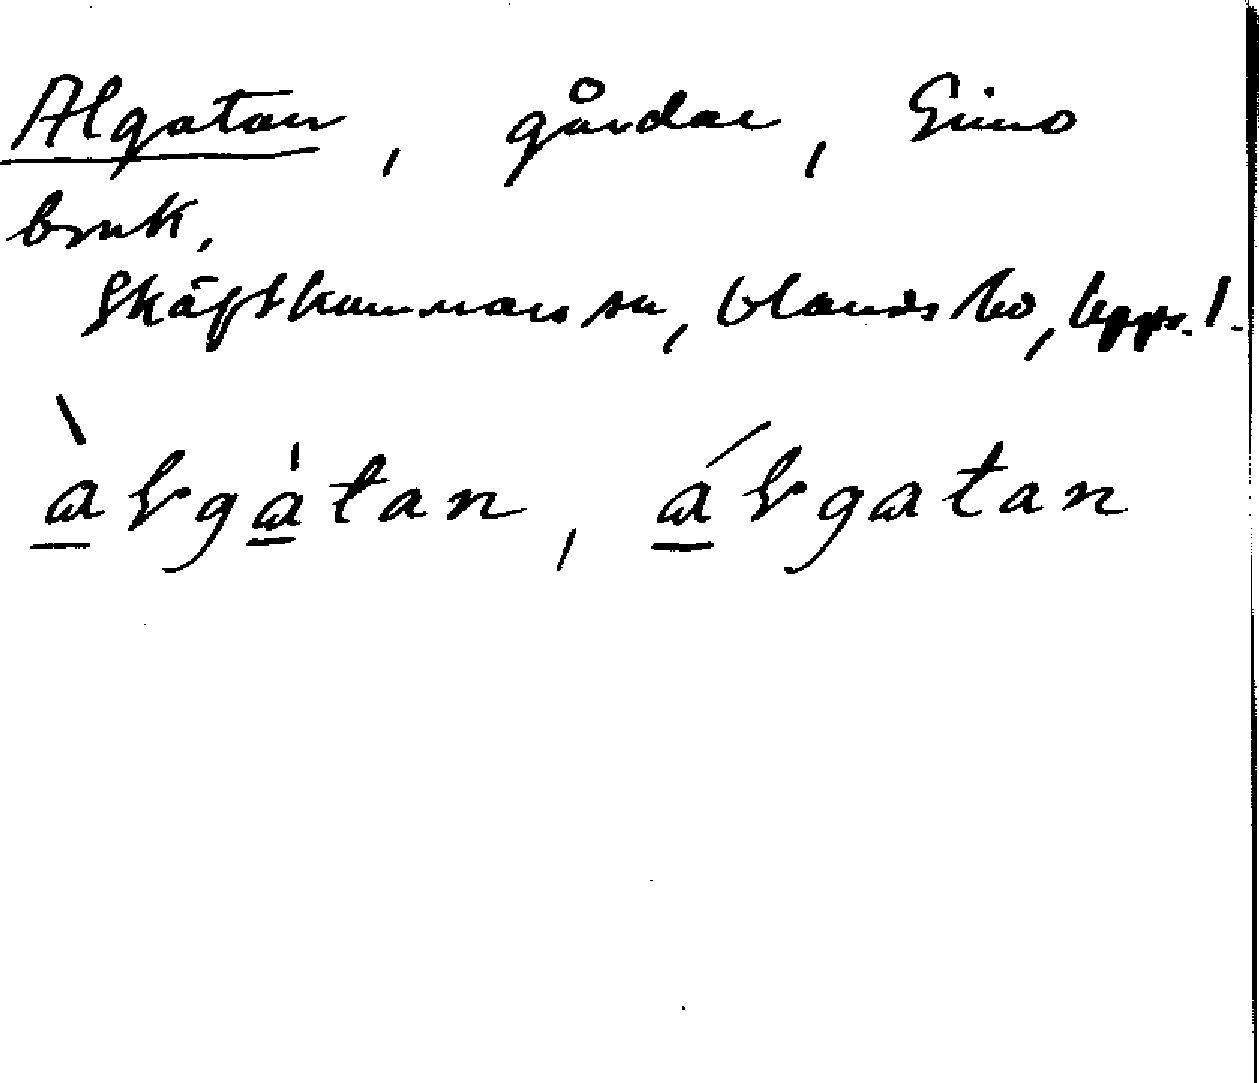 Algatan, gårdar, Gimo
bruk,
Skäfthammars sn, Olands hd, Upps. l.
àlgàtan, álgatan